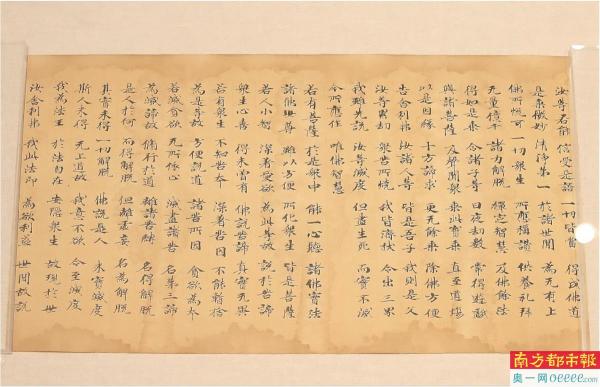 汝等若能 信受是語 一切皆當 得成佛道
是乘微妙 清淨第一 於諸世間 為无有上
佛所悅可 一切眾生 所應稱讚 供養礼拜
无量億千 諸力解脫 禪定智慧 及佛餘法
得如是乘 令諸子等 日夜劫數 常得遊戲
與諸菩薩 及聲聞眾 乘此寶乘 直至道場
以是因緣 十方諦求 更无餘乘 除佛方便
告舍利弗 汝諸人等 皆是吾子 我則是父
汝等累劫 眾苦所燒 我皆濟拔 令出三界
我雖先說 汝等滅度 但盡生死 而實不滅
今所應作 唯佛智慧
若有菩薩 於是眾中 能一心聽 諸佛實法
諸佛世尊 雖以方便 所化眾生 皆是菩薩
若人小智 深著愛欲 為此等故 說於苦諦
眾生心喜 得未曾有 佛說苦諦 真實无異
若有眾生 不知苦本 深著苦因 不能暫捨
為是等故 方便說道 諸苦所因 貪欲為本
若滅貪欲 无所依止 滅盡諸苦 名第三諦
為滅諦故 脩行於道 離諸苦縛 名得解脫
是人於何 而得解脫 但離虛妄 名為解脫
其實未得 一切解脫 佛說是人 未實滅度
斯人未得 无上道故 我意不欲 令至滅度
我為法王 於法自在 安隱眾生 故現於世
汝舍利弗 我此法印 為欲利益 世間故說
南方都市報
奥一网oeeee.com